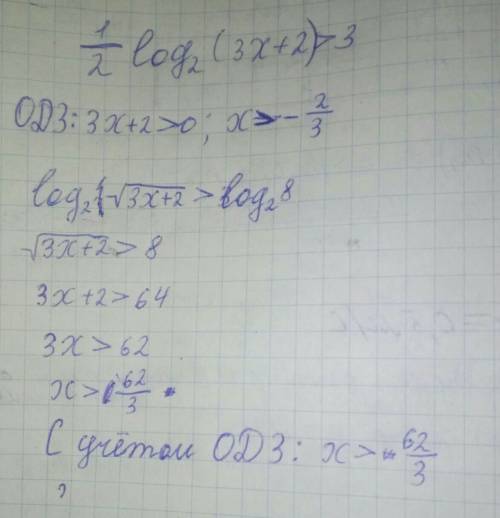 1/2 log₂(3x+2)>3
ОДЗ: 3x+2>0; x>-2/3
log₂√(3x+2) > log₂8
√(3x+2) > 8
3x+2>64
3x>62
x>62/3
С учётом ОДЗ: x>62/3